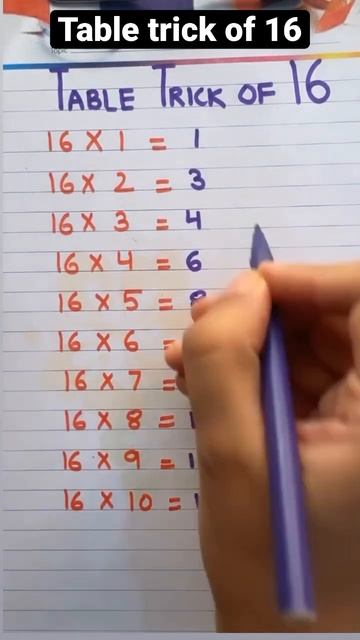 Table trick of 16
Topic
TABLE TRICK OF 16
16 X 1 = 1
16 X 2 = 3
16 X 3 = 4
16 X 4 = 6
16 X 5 = 8
16 X 6 =
16 X 7 =
16 X 8 = 1
16 X 9 = 1
16 X 10 = 1